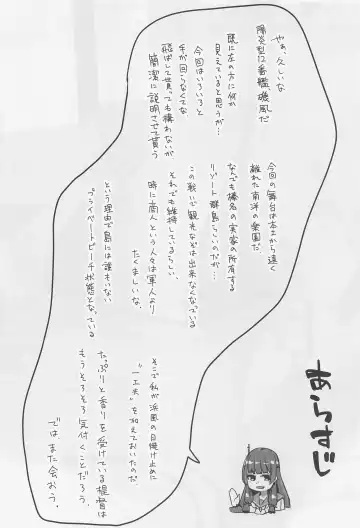 あらすじ
やぁ、久しいな
陽炎型12番艦磯風だ
既に左の方に何か
見えていると思うが…
今回はいろいろと
手が回らなくてな
飛ばして貰っても構わないが
簡潔に説明させて貰う
今回の舞台は本土から遠く
離れた南洋の楽園だ
なんでも榛名の実家の所有する
リゾート群島らしいのだが…
この戦いで観光などは出来なくなっている
それでも維持しているらしい、
時に商人という人々は軍人より
たくましいな。
という理由で島には誰もいない
プライベートビーチ状態となっている
そこで私が浜風の日焼け止めに
"一工夫"を加えておいたのだ、
たっぷりと香りを受けている提督は
もうそろそろ気付くことだろう。
では、また会おう。